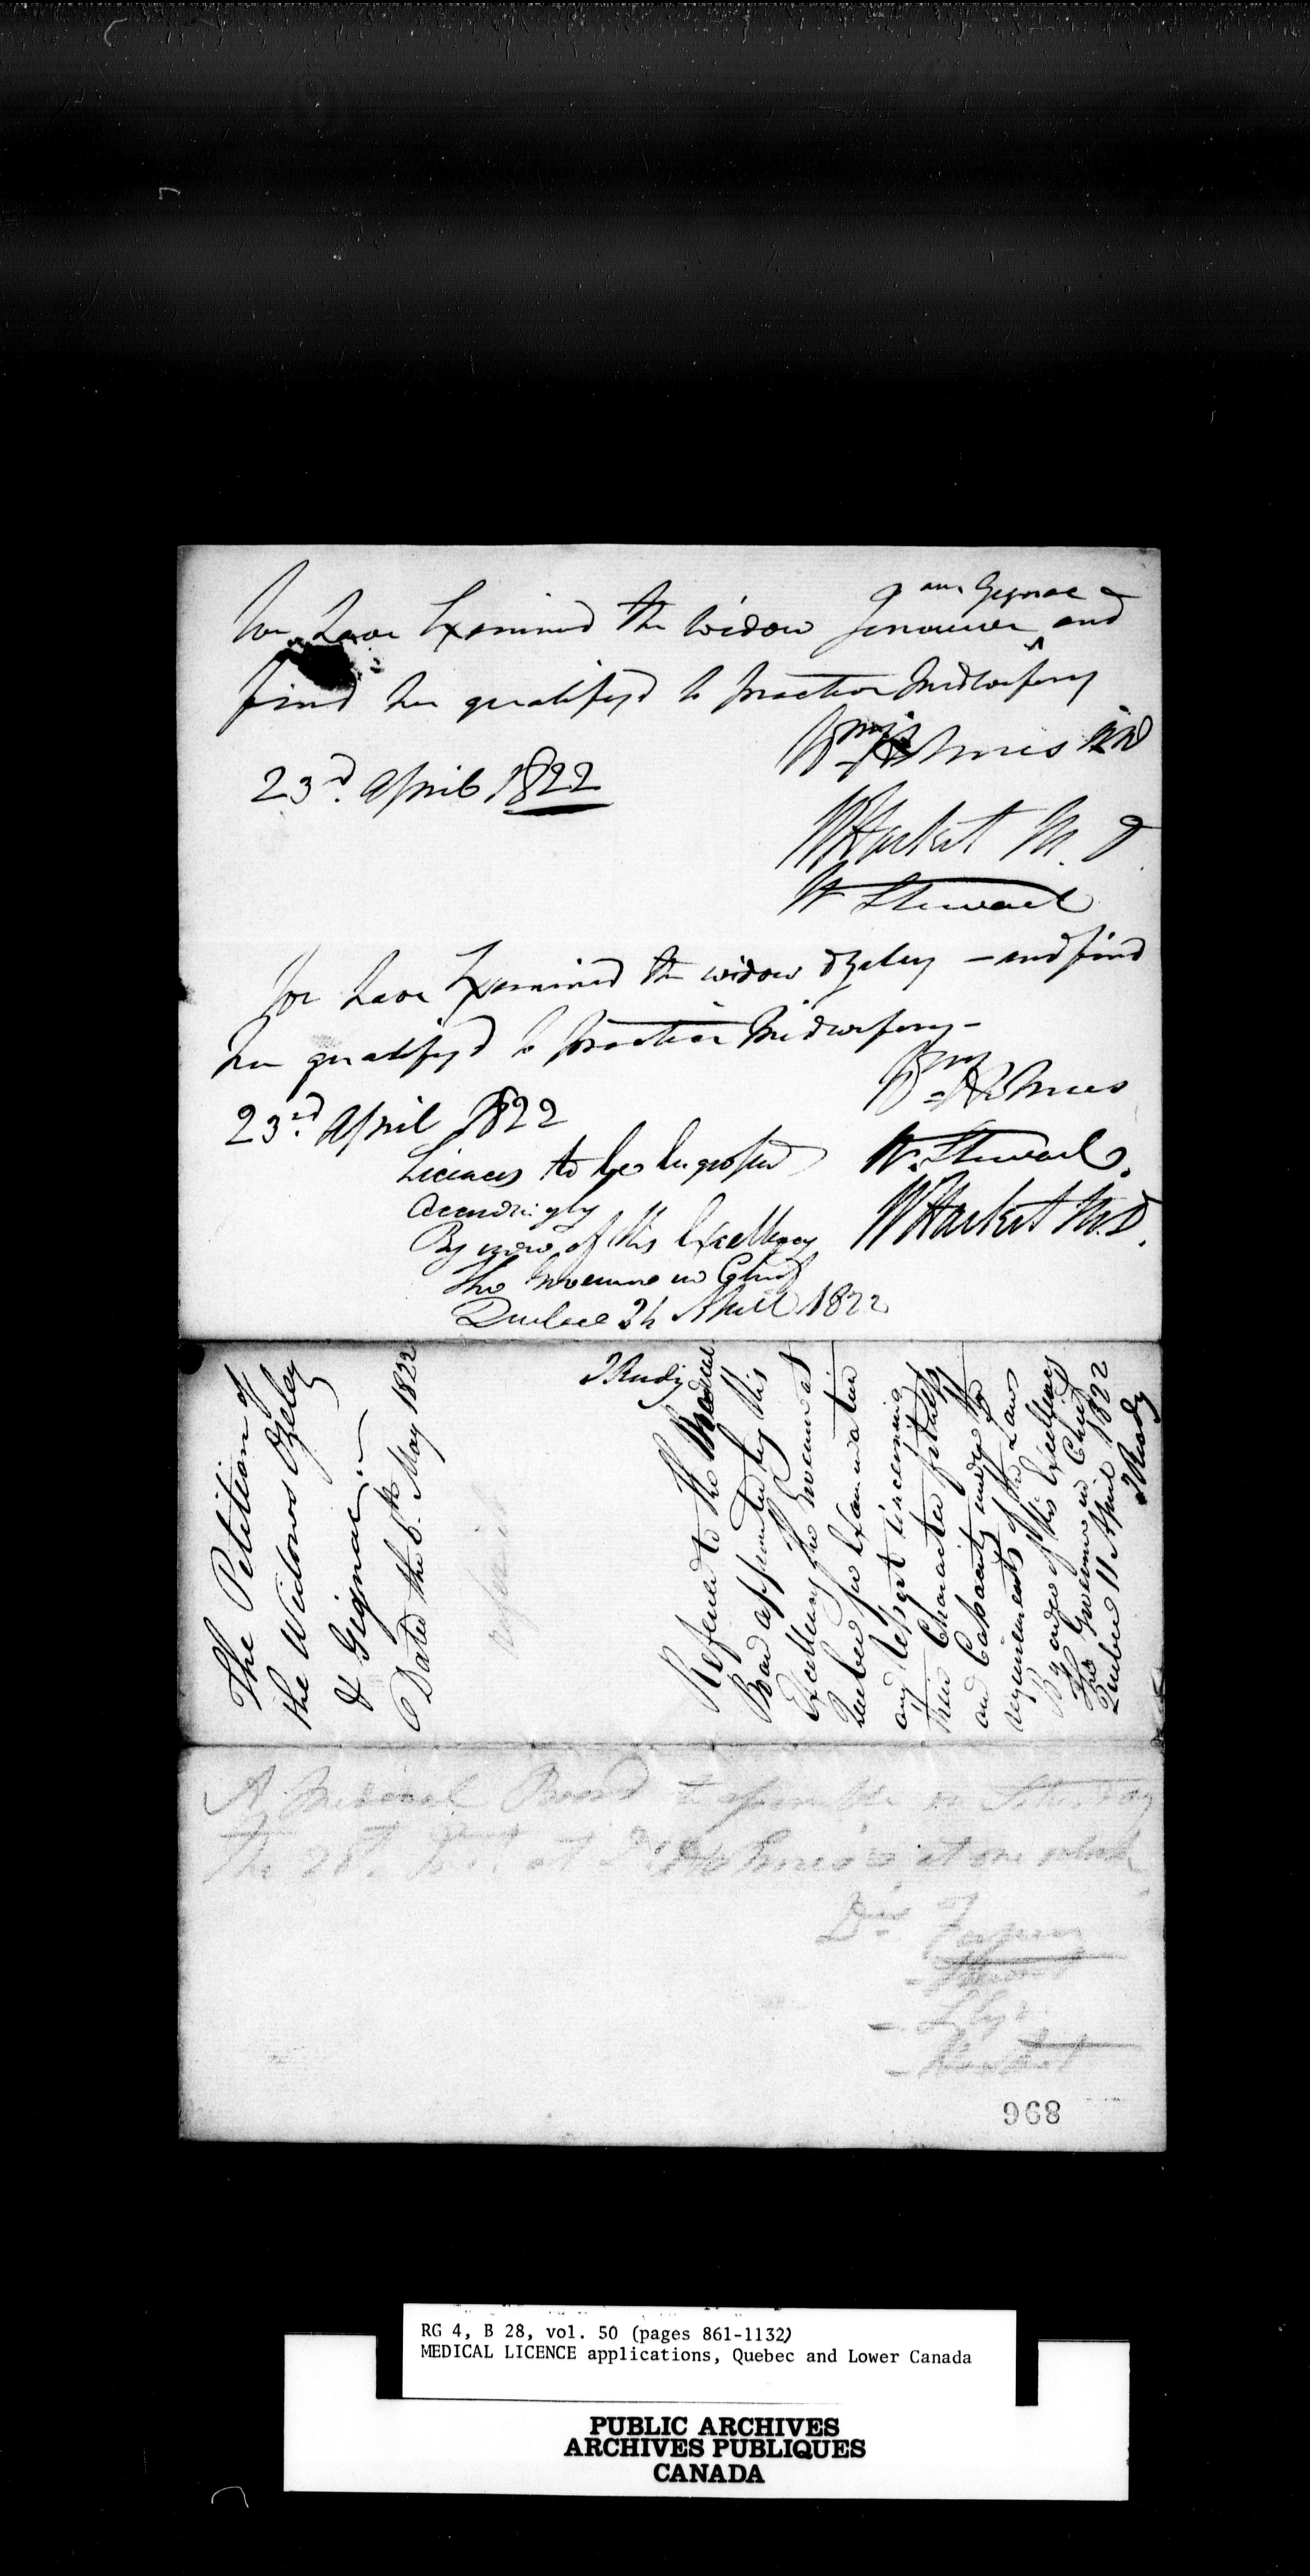 We have Examined the Widow Gignac and
find her qualifyd to practice Midwifery
23d. April 1822
Wm Holmes MD
W Hacket M. D
W Stewart
We have Examined the widow Ozeley – and find
her qualifyd to practice Midwifery –
23rd. April 1822
Wm Holmes
W. Stewart
W Hacket M.D.
Licences to be Engrossed
Accordingly
By order of His Excellency
The Governor in Chief
Quebec 24 April 1822
J Ready
The Petition of
the Widows Ozeley
& Gignac
Dated the 6th May 1822
Referred to the Medical
Board appointed by His
Excellency the Governor at
Quebec for Examination
and report concerning
their Character fitness
and Capacity under the
requirements of the Law
By order of His Excellency
The Governor in Chief
Quebec 11 April 1822
J Ready
A Medical Board to assemble on
The at Dr. Holmes's at one oclock
Drs
– Stewart
– Hacket
968
RG 4, B 28, vol. 50 (pages 861-1132)
MEDICAL LICENCE applications, Quebec and Lower Canada
PUBLIC ARCHIVES
ARCHIVES PUBLIQUES
CANADA